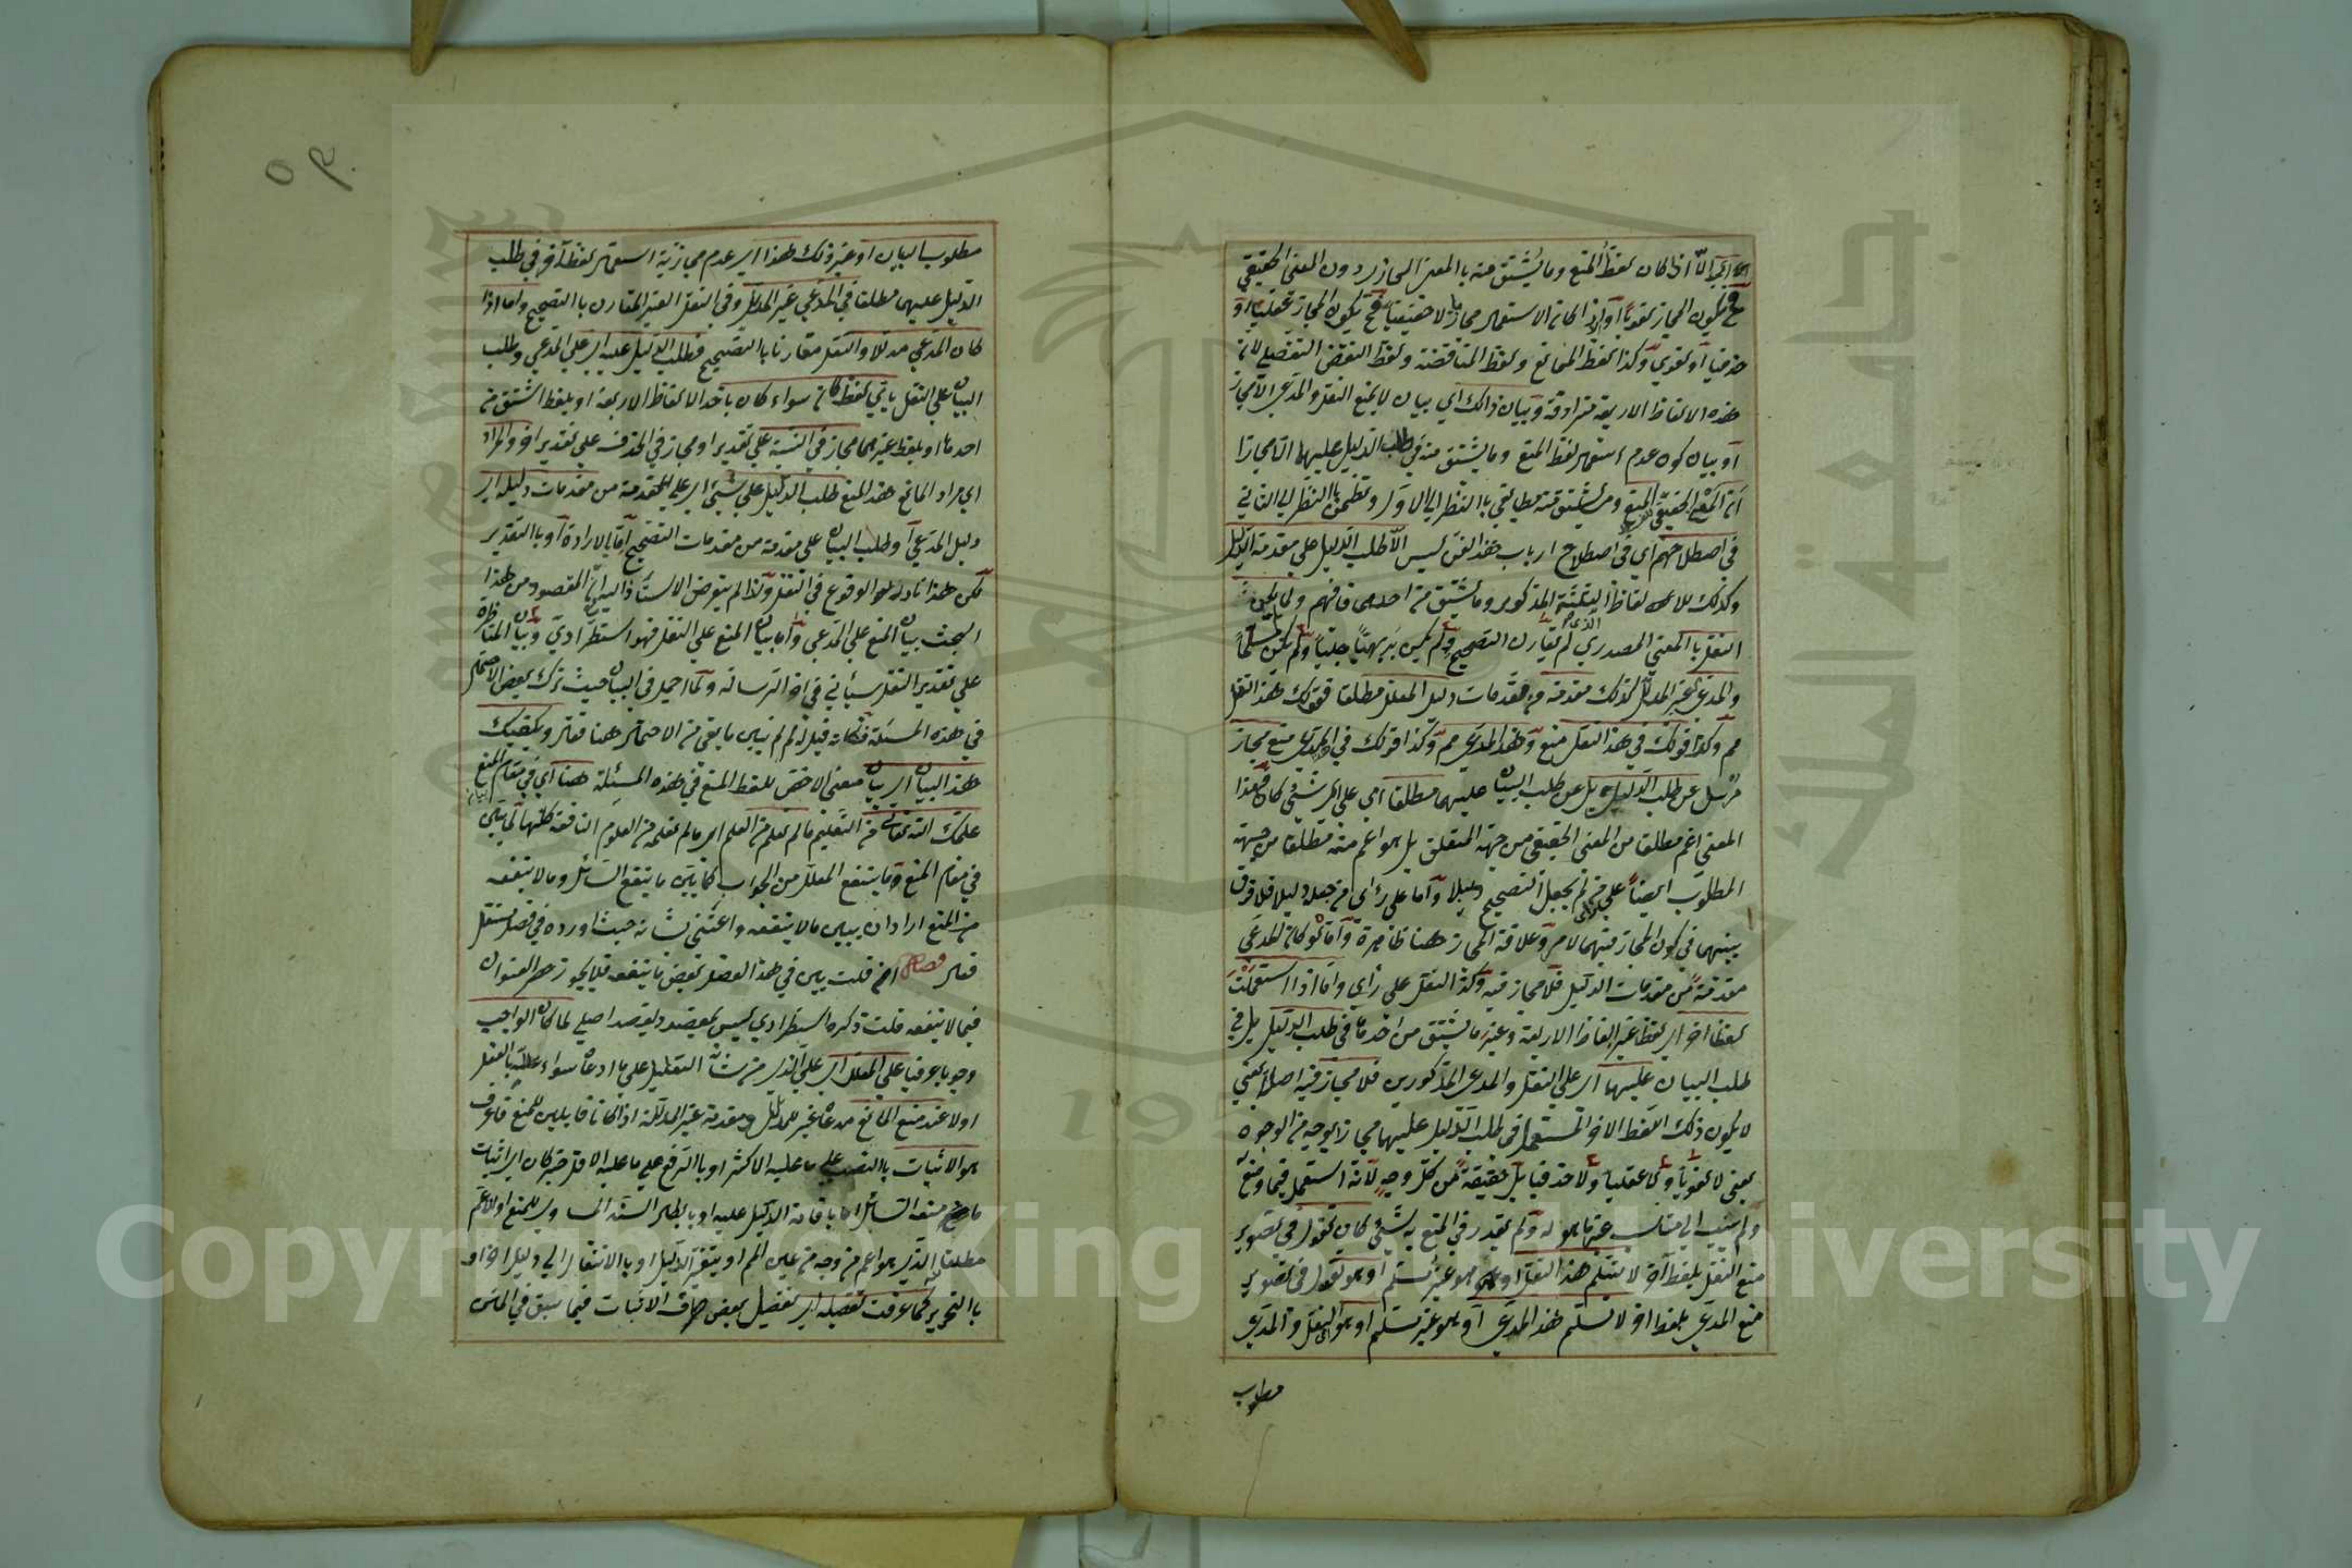 اذا كان لفظ المنع وما يشتق منه بالمعنى المجازي دون المعنى الحقيقي
فيكون المجاز لغويا او اذا كان الاستعمال مجازيا لا حقيقيا فح يكون المجاز عقليا او
حذفيا او لغوي وكذا لفظ الممانع ولفظ المناقضة ولفظ النقض التفصيلي لان
هذه الالفاظ الاربعة مترادفة وبيان ذالك اي بيان لا يمنع النقل والمدعي الا مجازا
او بيان كون عدم استعمال لفظ المنع وما يشتق منه في طلب الدليل عليهما الا مجازا
ان المعنى الحقيقي للمنع وما يشتق منه مطابقي باالنظر الي الاول وتضمني باالنظر الي الثاني
في اصطلاحهم اي في اصطلاح ارباب هذا الفن ليس الا طلب الدليل علي مقدمة الدليل
وكذلك للالفاظ الثلثة المذكور وما يشتق من احدها فافهم ولما يكن
النقل باالمعني المصدري الذي لم يقارن التصحيح ولم يكن بديهيا جليا ولم يكن مسلما
والمدعي الغير المدلل كذلك مقدمة من مقدمات دليل المعلل مطلقا فقولك هذا النقل
مم وكذا قولك في هذا النقل منع وهذا المدعي مم وكذا قولك في المدعي منع مجاز
مرسل عن طلب الدليل بل عن طلب البيان عليهما مطلقا اي علي اي شيئ كان فهذا
المعني اعم مطلقا من المعني الحقيقي من جهة المتعلق بل هو اعم منه مطلقا من جهة
المطلوب ايضا علي راي من لم يجعل التصحيح دليلا واما علي رأي من جعله دليلا فلا فرق
بينهما في كون المجاز فيهما لامر وعلاقة المجاز ههنا ظاهرة واما لو كان المدعي
مقدمة من مقدمات الدليل فلا مجاز فيه وكذا النقل علي رأي واما اذا استعملت
لفظا اخر اي لفظا غير الفاظ الاربعة وغير ما يشتق من احدها في طلب الدليل بل في
طلب البيان عليهما اي علي النقل والمدعي المذكورين فلا مجاز فيه اصلا يعني
لا يكون ذلك اللفظ الاخر المستعمل في طلب الدليل عليهما مجازا بوجه من الوجوه
يعني لا لغويا ولا عقليا ولا حذفيا بل حقيقة من كل وجه لانه استعمل فيما وضع
ولم ينسب الي مناسب غير ما هو له ولم يقدر في المنع به شيئ كان تقول في تصوير
منع النقل بلفظ آخر لا نسلم هذا النقل او هو غير مسلم او هو تقول في تصوير
منع المدعي بلفظ اخر لا نسلم هذا المدعي او هو غير مسلم او هو اي النقل والمدعي
مطلوب
٥٩
مطلوب البيان او غير ذلك هذا اي عدم مجازية استعمال لفظ آخر في طلب
الدليل عليهما مطلقا في المدعي غير المدلل وفي النقل الغير المقارن باالتصحيح واما اذا
كان المدعي مدللا والنقل مقارنا باالتصحيح فطلب الدليل عليه اي علي المدعي وطلب
البيان علي النقل باي لفظ كان سواء كان باحد الالفاظ الاربعة او بلفظ اشتق من
احدها او بلفظ غيرهما مجاز في النسبة علي تقدير او مجاز في الحذف علي تقدير اخر والمراد
اي مراد المانع هذا المنع طلب الدليل علي شيئ اي علي المقدمة من مقدمات دليله اي
دليل المدعي او طلب البيان علي مقدمة من مقدمات التصحيح اما بالارادة او باالتقدير
لكن هذا نادر الوقوع في النقل ولذا لم يتعرض الاستاذ اليه المقصود من هذا
البحث بيان المنع علي المدعي واما بيان المنع علي النقل فهو استطرادي وبيان المناظرة
علي تقدير النقل سيأتي في اخر الرسالة ولما اجمل في البيان حيث ترك بعض الاحتمال
في هذه المسئلة فكانه قيل له لم لم تبين ما بقي من الاحتمال ههنا فقال ويكفيك
هذا البيان اي بيان معنى الاخص للفظ المنع في هذه المسئلة ههنا اي في مقام المنع
علمك الله تعالي من التعليم ما لم تعلم من العلم اي ما لم تعلمه من العلوم النافعة كلها لما بين
في مقام المنع وما ينتفع المعلل من الجواب كما بين ما ينفع السائل وما لا ينفعه
من المنع اراد ان يبين ما لا ينفعه واعتنى بشانه حيث اورده في فصل مستقل
فقال فصل اخر قلت بين في هذا الفصل بعض ما ينفعه فلا يجوز حصر العنوان
فيما لا ينفعه قلت ذكره استطرادي ليس بمقصود وقصد اصلي لما كان الواجب
وجوبا عرفيا علي المعلل اي علي الذي من شأنه التعليل علي ما ادعاه سواء علله باالفعل
اولا عند منع المانع مدعاه غير المدلل ومقدمة غير المدللة اذا كانا قابلين للمنع فاعرف
هو الاثبات باالنصب علي ما عليه الاكثر او باالرفع علي ما عليه الاقل خبر كان اي اثبات
ما منع منعه السائل اما باقامة الدليل عليه او بابطال السند المساوي للمنع او الاعم
مطلقا الذي هو اعم من وجه من عين المم او بتغير الدليل او باالانتقال الي دليل اخر او
باالتحرير كما عرفت تفصيله اي تفصيل بعض طرق الاثبات فيما سبق في المتن